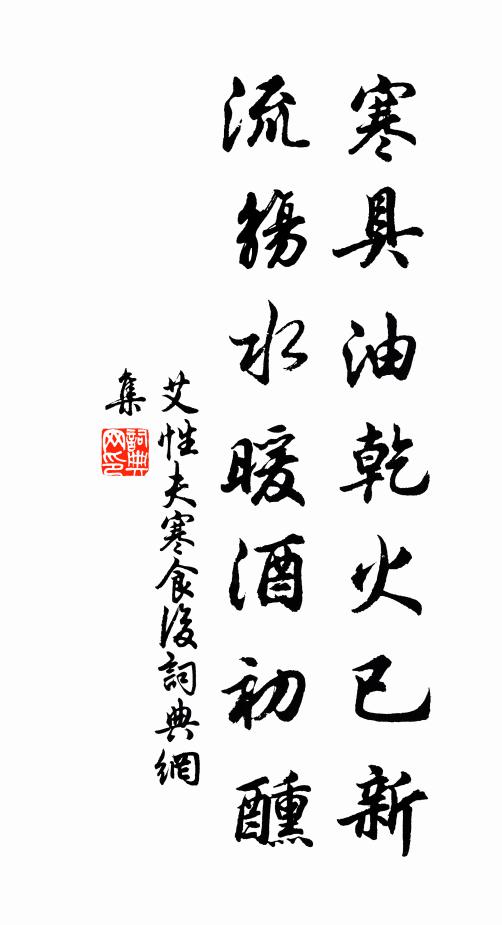 寒具油乾火已新
流觴水暖酒初醺
艾性夫寒食後詞典網
集
詞典
网印